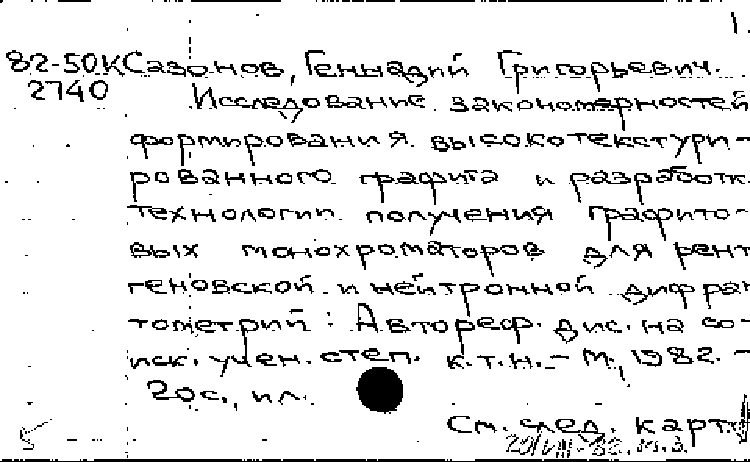 1.
82-50К Сазонов, Геннадий Григорьевич.
2740 Исследование закономерностей
формирования высокотекстури-
рованного графита и разработк
технологии получения графито-
вых монохроматоров для рент
геновской и нейтронной дифрак
тометрий: Автореф. дис. на со-
иск. учен. степ. к.т.н. - М., 1982. -
20с., ил.
См. след. карт.